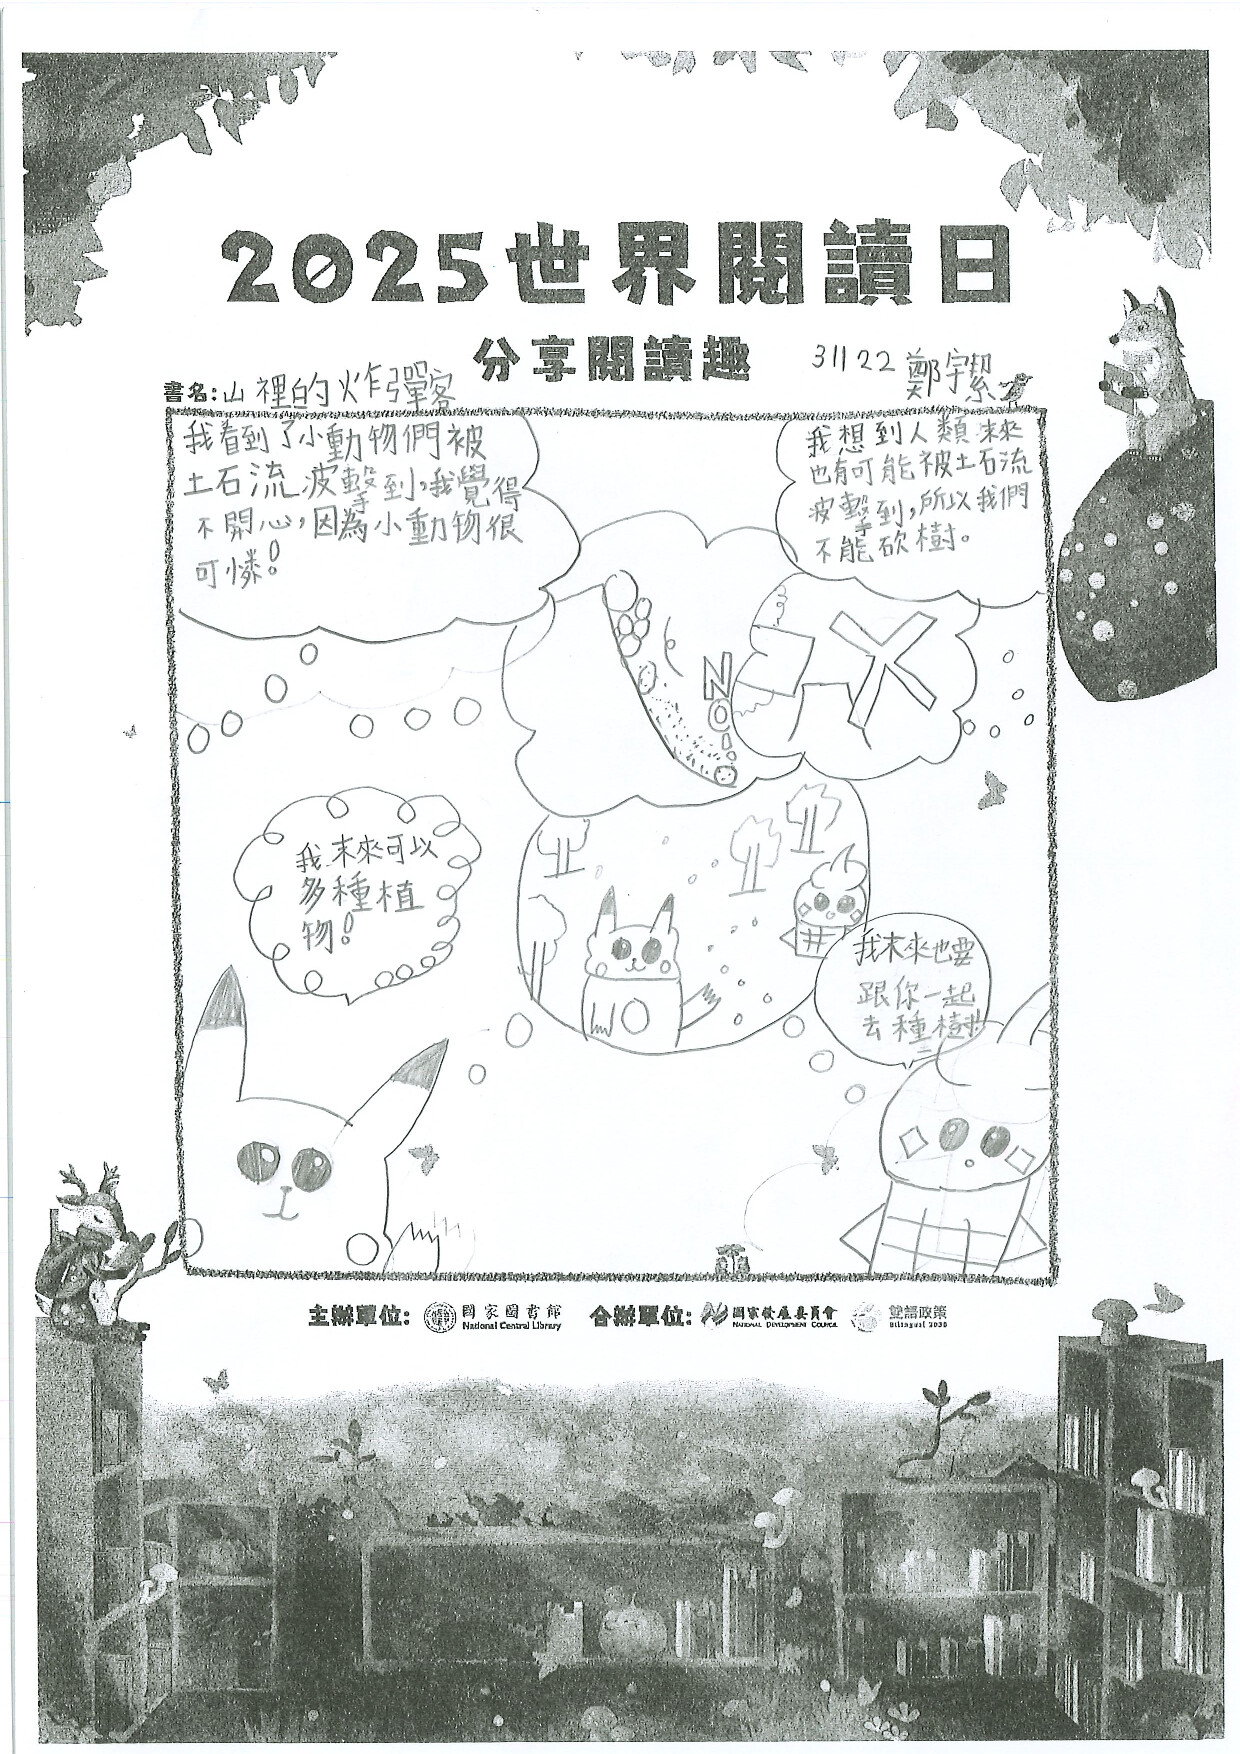 2025世界閱讀日
分享閱讀趣
31122 鄭宇絜
書名:山裡的炸彈客
我看到了小動物們被
土石流波擊到,我覺得
不開心,因為小動物很
可憐!
我想到人類未來
也有可能被土石流
波擊到,所以我們
不能砍樹。
NO!
我未來可以
多種植
物!
我未來也要
跟你一起
去種樹!
主辦單位: 國家圖書館 National Central Library 合辦單位: 國家發展委員會 National Development Council 雙語政策 Bilingual 2030